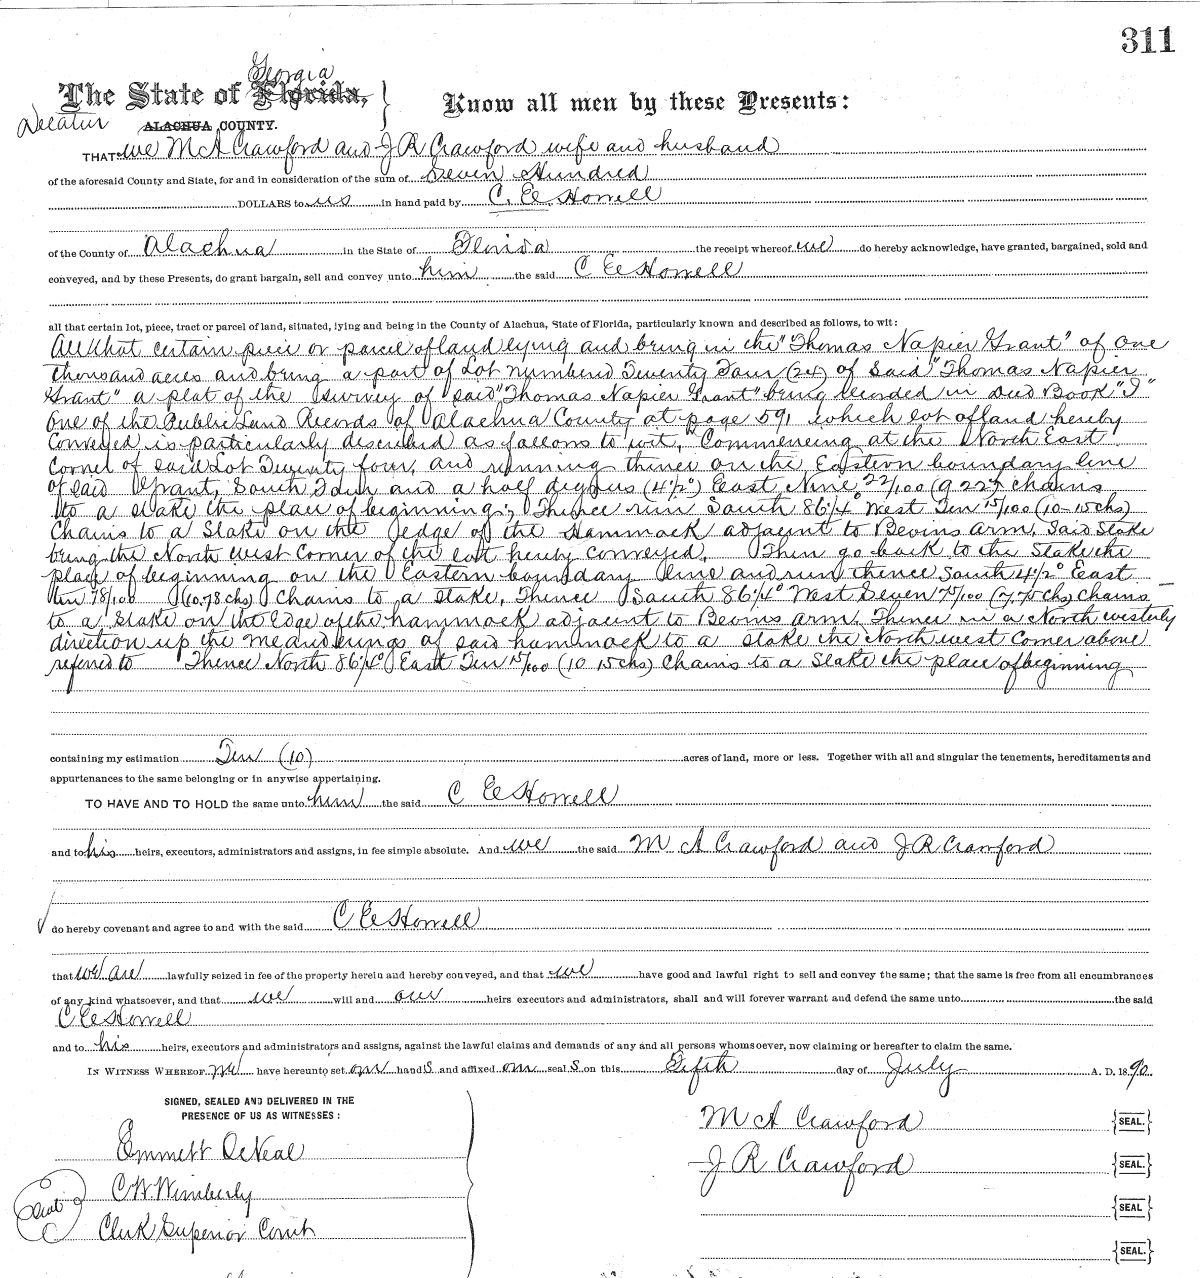 311
Georgia
The State of Florida,
Decatur ALACHUA COUNTY.
Know all men by these Presents:
THAT we M A Crawford and J R Crawford wife and husband
of the aforesaid County and State, for and in consideration of the sum of Seven Hundred
DOLLARS to us in hand paid by C. E Howell
of the County of Alachua in the State of Florida the receipt whereof we do hereby acknowledge, have granted, bargained, sold and
conveyed, and by these Presents, do grant bargain, sell and convey unto him the said C E Howell
all that certain lot, piece, tract or parcel of land, situated, lying and being in the County of Alachua, State of Florida, particularly known and described as follows, to wit:
All that certain piece or parcel of land lying and being in the "Thomas Napier Grant" of one
thousand acres and being a part of Lot numbered Twenty Four (24) of Said "Thomas Napier
Grant" a plat of the survey of said "Thomas Napier Grant" being recorded in deed Book "I"
one of the Public Land Records of Alachua County at page 591 which lot of land hereby
conveyed is particularly described as follows to wit, "Commencing at the North East
Corner of said Lot Twenty four, and running thence on the Eastern boundary line
of said Grant, South Four and a half degrees (4½°) East Nine 22/100 (9 22) chains
to a stake the place of beginning; Thence run South 86¼° West Ten 15/100 (10-15 chs)
Chains to a Stake on the edge of the Hammock adjacent to Bevins Arm, Said Stake
being the North west Corner of the lot hereby conveyed. Then go back to the Stake the
place of beginning on the Eastern boundary line and run thence South 4½° East
ten 78/100 (10,78 chs) Chains to a stake, Thence South 86¼° West Seven 75/100 (7,75 chs) Chains
to a Stake on the Edge of the hammock adjacent to Bevins Arm, Thence in a North westerly
direction up the meanderings of said hammock to a stake the North west Corner above
referred to Thence North 86¼° East Ten 15/100 (10 15 chs) Chains to a Stake the place of beginning
containing my estimation Ten (10) acres of land, more or less. Together with all and singular the tenements, hereditaments and
appurtenances to the same belonging or in anywise appertaining.
TO HAVE AND TO HOLD the same unto him the said C E Howell
and to his heirs, executors, administrators and assigns, in fee simple absolute. And we the said M A Crawford and J R Crawford
do hereby covenant and agree to and with the said C E Howell
that we are lawfully seized in fee of the property herein and hereby conveyed, and that we have good and lawful right to sell and convey the same; that the same is free from all encumbrances
of any kind whatsoever, and that we will and our heirs executors and administrators, shall and will forever warrant and defend the same unto the said
C E Howell
and to his heirs, executors and administrators and assigns, against the lawful claims and demands of any and all persons whomsoever, now claiming or hereafter to claim the same.
IN WITNESS WHEREOF we have hereunto set our hands and affixed our seals on this Fifth day of July A. D. 1890.
SIGNED, SEALED AND DELIVERED IN THE
PRESENCE OF US AS WITNESSES:
Emmett O'Neal
C W Wimberly
Seal Clerk Superior Court
M A Crawford {SEAL.}
J R Crawford {SEAL.}
{SEAL.}
{SEAL.}